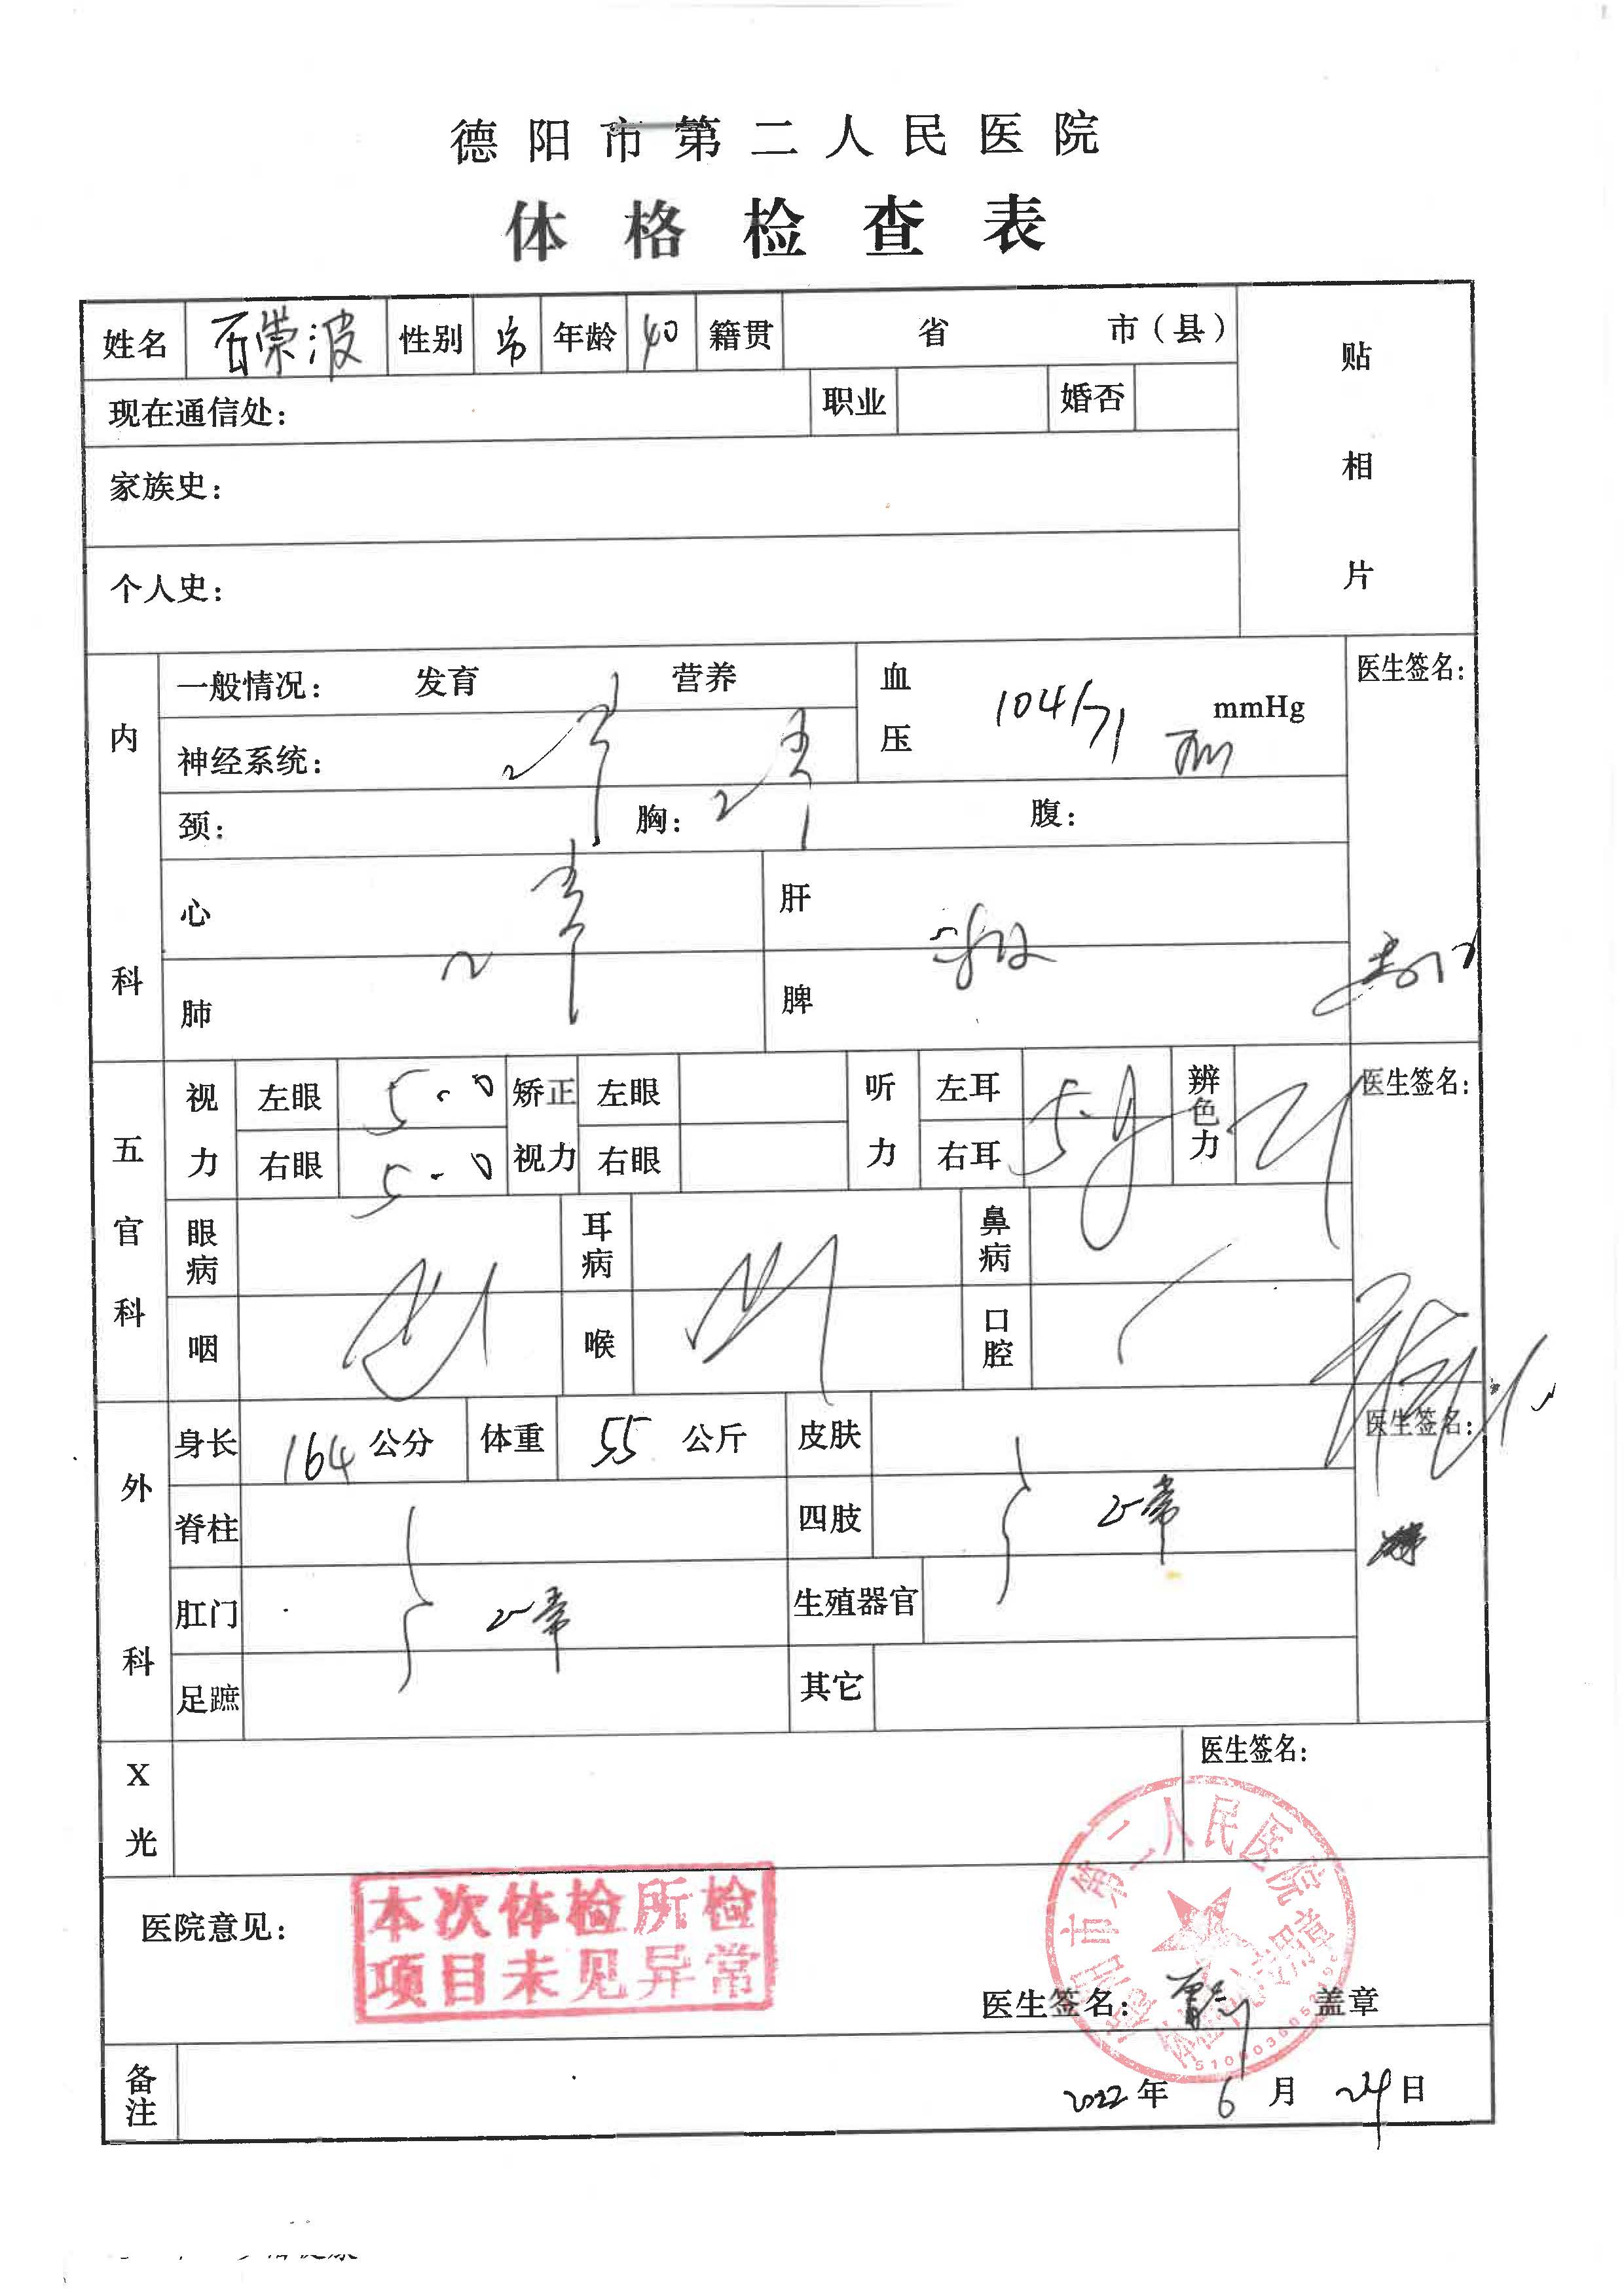 德阳市第二人民医院
体格检查表
姓名 石崇波 性别 男 年龄 40 籍贯 省 市(县)
贴相片
现在通信处: 职业 婚否
家族史:
个人史:
内科
一般情况: 发育 营养
血压 104/71 mmHg
医生签名:
神经系统:
颈: 胸: 腹:
心 肝
肺 脾
五官科
视力 左眼 5.0 矫正视力 左眼 听力 左耳 辨色力
医生签名:
右眼 5.0 右眼 右耳
眼病 耳病 鼻病
咽 喉 口腔
外科
身长 164 公分 体重 55 公斤 皮肤
医生签名:
脊柱 四肢 正常
肛门 正常 生殖器官
足蹠 其它
X光
医生签名:
医院意见:
本次体检所检
项目未见异常
德阳市第二人民医院
医生签名: 盖章
备注
2022年 6月 24日